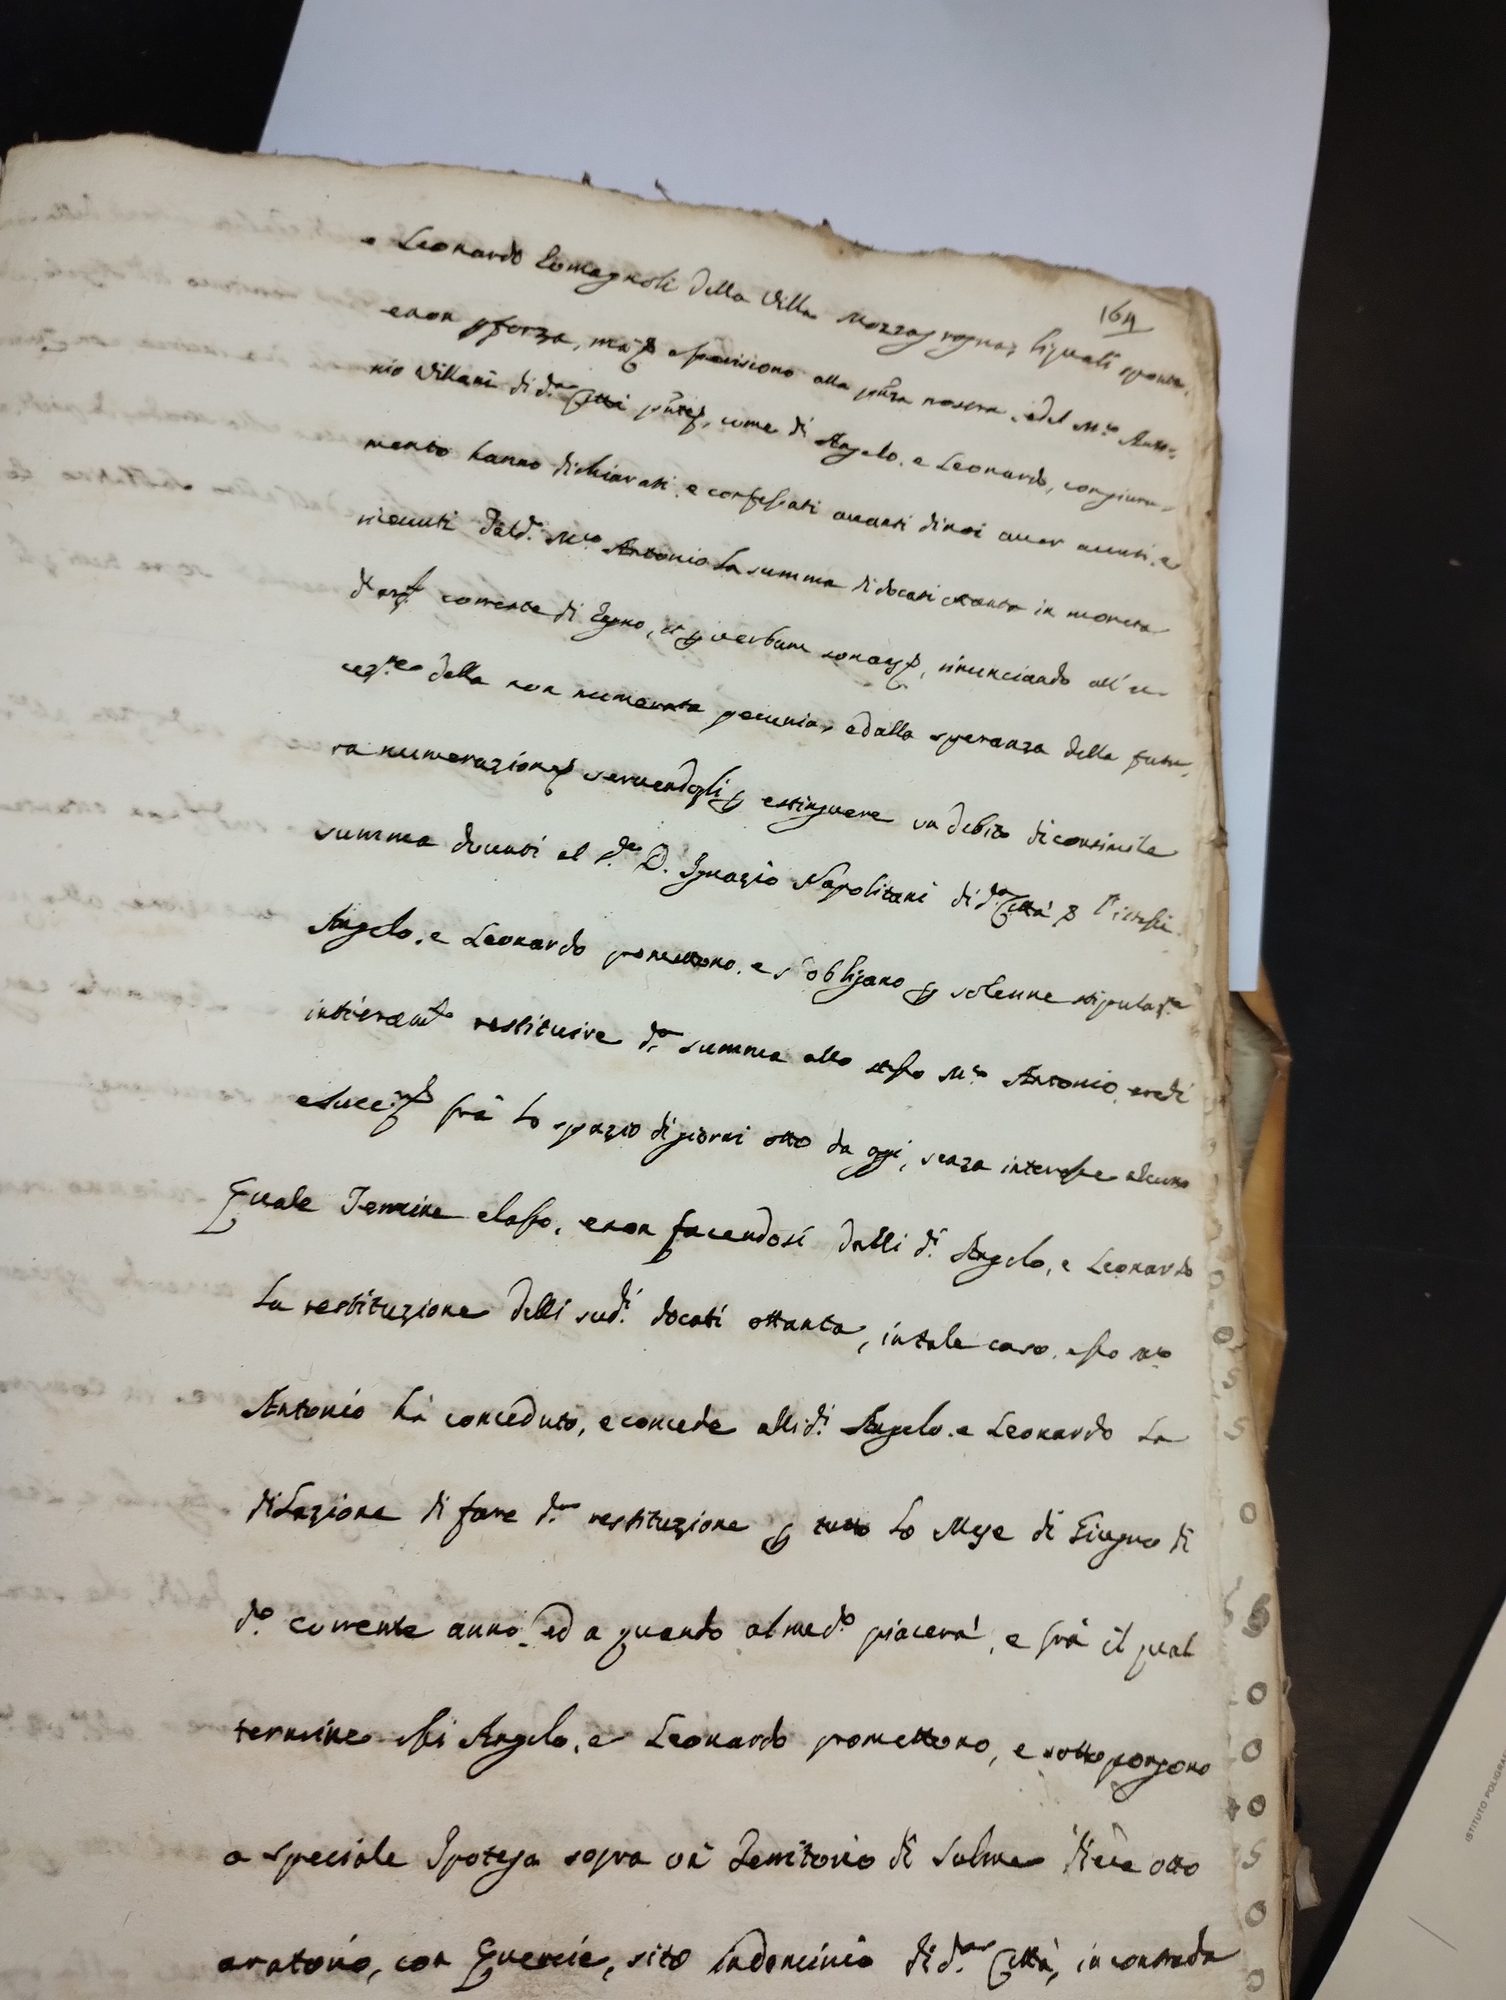 164
e Leonardo Romagnoli della Villa Mozzagrogna, li quali sponta,,
e non p forza, ma p espressiono alla pnza nostra, e del Mco Anto,,
nio Villani di da Città pnte, come di Angelo, e Leonardo, con giura,,
mento hanno dichiarati, e confessati avanti di noi aver avuti, e
ricevuti dal do Mco Antonio La summa di docati ottanta in moneta
d'arg. corrente di Regno, et p verbum, rinunciando all'ec,,
cezne della non numerata pecunia, ed alla speranza della futu,,
ra numerazione servendogli p estinguere un debito di consimile
summa dovuti al do D. Ignazio Napolitani di da Città
Angelo, e Leonardo promettono, e s'obligano p solenne stipulazne
intieramte restituire da summa allo stesso Mco Antonio, eredi
e succri frà Lo spazio di giorni otto da oggi, senza interesse alcuno
Quale Termine elasso, e non facendosi dalli di Angelo, e Leonardo
La restituzione delli sudi docati ottanta, in tale caso, esso Mco
Antonio hà conceduto, e concede alli di Angelo, e Leonardo La
dilazione di fare da restituzione p tutto Lo Mese di Giugno di
do corrente anno, ed a quando al medo piacerà, e frà il qual
termine essi Angelo, e Leonardo promettono, e sottopongono
a speciale Ipoteca sopra un Territorio di salme dieci otto
aratorio, con Quercie, sito di da Città, in contrada
ISTITUTO POLIGRA